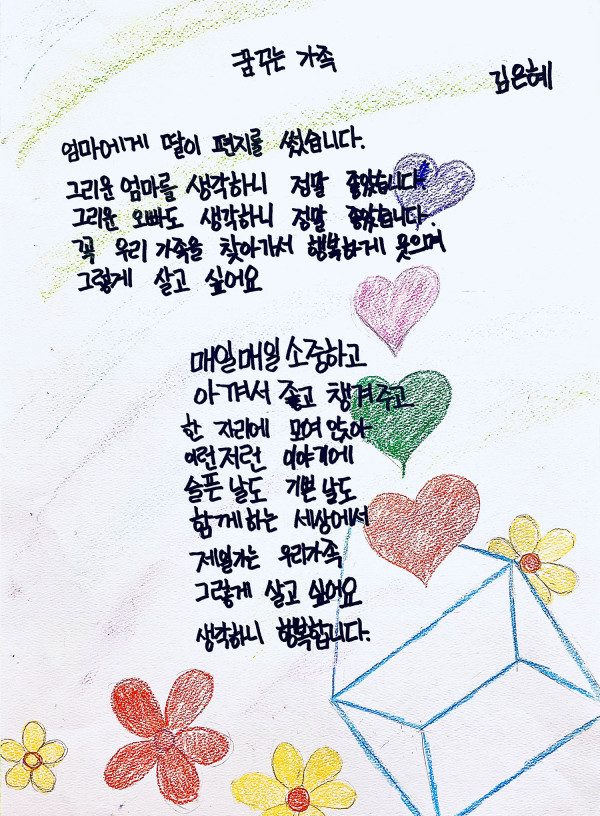 꿈꾸는 가족
김은혜
엄마에게 딸이 편지를 썼습니다.
그리운 엄마를 생각하니 정말 좋았습니다.
그리운 오빠도 생각하니 정말 좋았습니다.
꼭 우리 가족을 찾아가서 행복하게 웃으며
그렇게 살고 싶어요
매일매일 소중하고
아껴서 좋고 챙겨주고
한 자리에 모여 앉아
이런저런 이야기에
슬픈 날도 기쁜 날도
함께하는 세상에서
제일가는 우리가족
그렇게 살고 싶어요
생각하니 행복합니다.